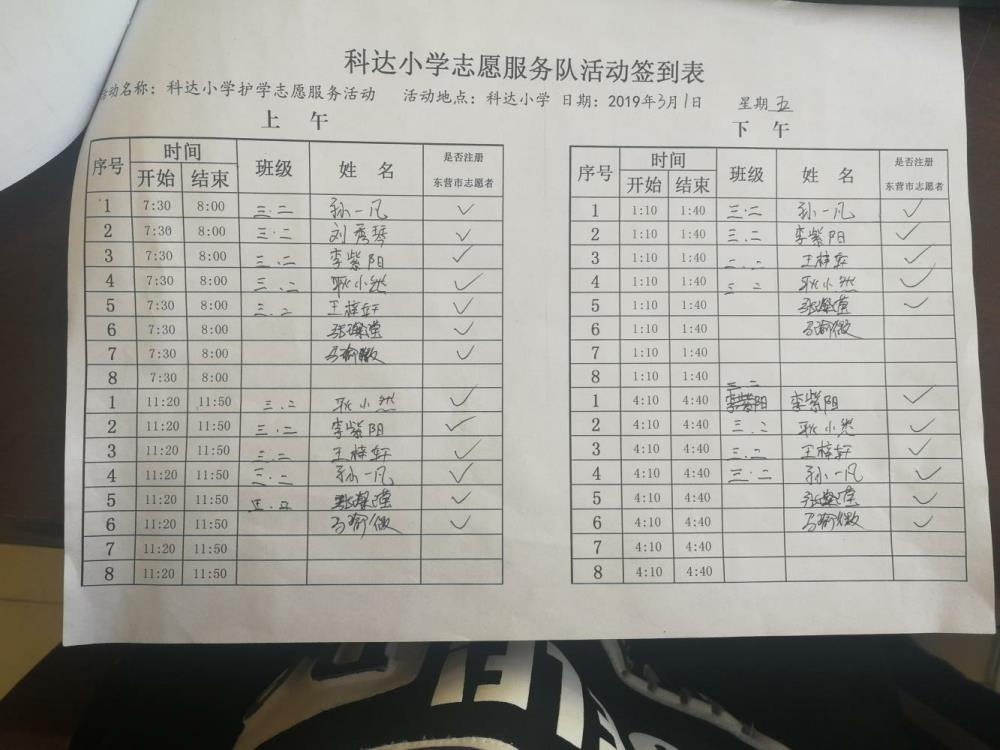 科达小学志愿服务队活动签到表
活动名称：科达小学护学志愿服务活动 活动地点：科达小学 日期：2019年3月1日 星期五
上 午
序号 时间 班级 姓 名 是否注册东营市志愿者
开始 结束
1 7:30 8:00 三.二 孙一凡 ✓
2 7:30 8:00 三.二 刘秀琴 ✓
3 7:30 8:00 三.二 李紫阳 ✓
4 7:30 8:00 三.二 耿小然 ✓
5 7:30 8:00 三.二 王梓轩 ✓
6 7:30 8:00 ✓
7 7:30 8:00 ✓
8 7:30 8:00
1 11:20 11:50 三.二 耿小然 ✓
2 11:20 11:50 三.二 李紫阳 ✓
3 11:20 11:50 三.二 王梓轩 ✓
4 11:20 11:50 三.二 孙一凡 ✓
5 11:20 11:50 ✓
6 11:20 11:50 ✓
7 11:20 11:50
8 11:20 11:50
下 午
序号 时间 班级 姓 名 是否注册东营市志愿者
开始 结束
1 1:10 1:40 三.二 孙一凡 ✓
2 1:10 1:40 三.二 李紫阳 ✓
3 1:10 1:40 三.二 王梓轩 ✓
4 1:10 1:40 三 二 耿小然 ✓
5 1:10 1:40 ✓
6 1:10 1:40
7 1:10 1:40
8 1:10 1:40
1 4:10 4:40 三.二 李紫阳 ✓
2 4:10 4:40 三.二 耿小然 ✓
3 4:10 4:40 三.二 王梓轩 ✓
4 4:10 4:40 三.二 孙一凡 ✓
5 4:10 4:40 ✓
6 4:10 4:40 ✓
7 4:10 4:40
8 4:10 4:40